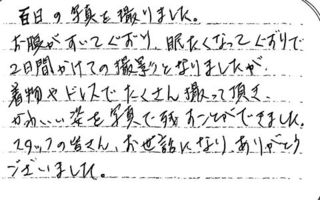 百日の写真を撮りました。
お腹がすいてぐずり、眠たくなってぐずりで
2日間かけての撮影となりましたが、
着物やドレスでたくさん撮って頂き、
かわいい姿を写真で残すことができました。
スタッフの皆さん、お世話になり、ありがとう
ございました。